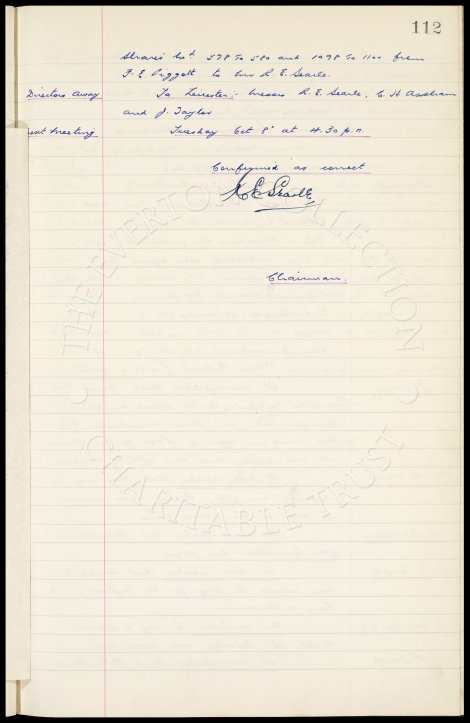 112
Shares Nos 578 To 580 and 1098 To 1100 from
F. E. Piggott to Mr R. E. Searle.
Directors Away To Leicester:- Messrs R. E. Searle, C. H. Askham
and J. Taylor
ext Meeting Tuesday Oct 8th at 4.30 p.m.
Confirmed as correct
R E Searle
Chairman.
THE EVERTON COLLECTION
CHARITABLE TRUST